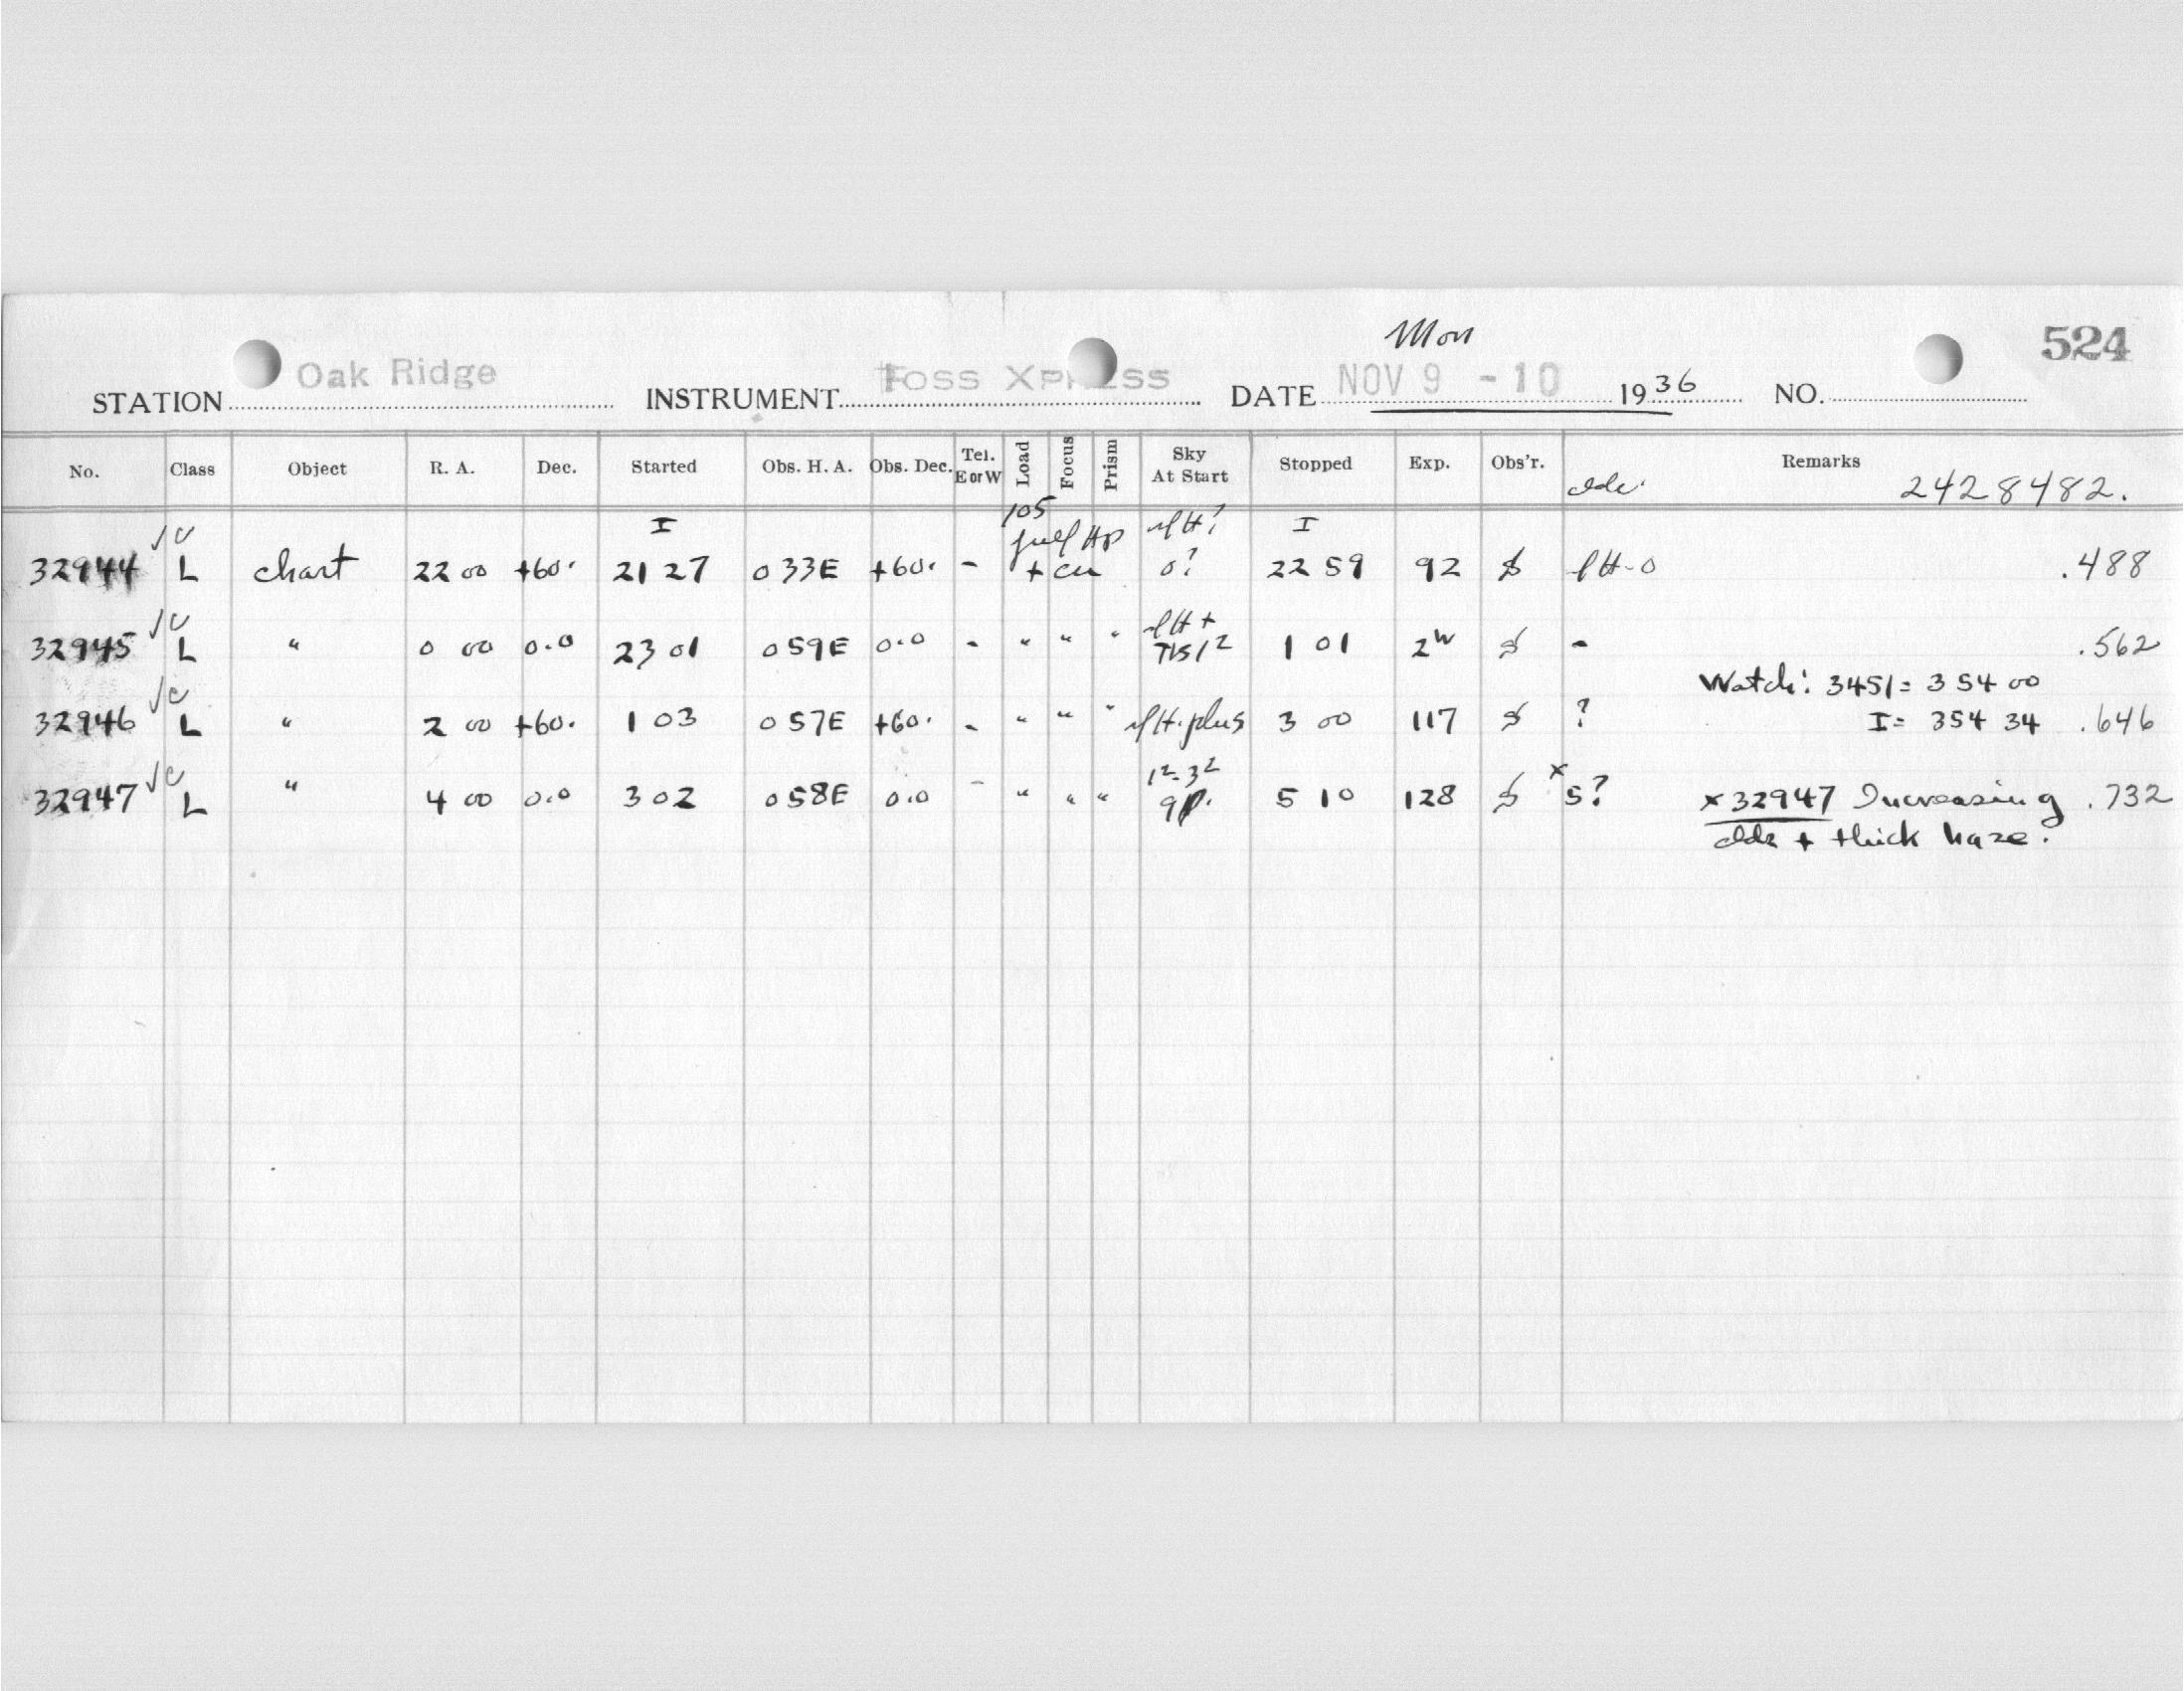 Mon
524
STATION Oak Ridge INSTRUMENT Foss Xpress DATE NOV 9 - 10 1936 NO.
No. Class Object R. A. Dec. Started Obs. H. A. Obs. Dec. Tel. E or W Load Focus Prism Sky At Start Stopped Exp. Obs'r. Remarks
2428482.
105
√c I full HP I
32944 L chart 22 00 +60. 21 27 0 33E +60. - + cu 0? 22 59 92 $ lH-0 .488
√c lH +
32945 L " 0 00 0.0 23 01 0 59E 0.0 - " " " 1 01 2 $ - .562
Watch: 3451= 3 54 00
√c
32946 L " 2 00 +60. 1 03 0 57E +60. - " " " plus 3 00 117 $ ? I= 354 34 .646
√c 1²-3²
32947 L " 4 00 0.0 3 02 0 58E 0.0 - " " " 5 10 128 $ x5? x 32947 Increasing .732
clds + thick haze.